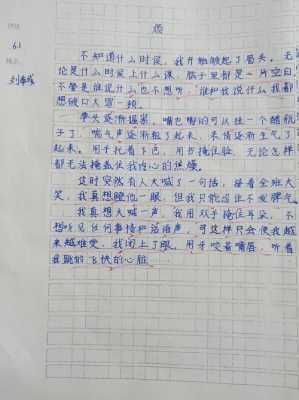 烦
6.1
不知道什么时候，我开始皱起了眉头。无
论是什么时候上什么课，脑子里都是一片空白，
不管是谁说什么也不想听，谁和我说什么我都
想破口大骂一顿。
拳头逐渐握紧，嘴巴嘟的可以挂一个醋瓶
子了，喘气声逐渐粗了起来，表情逐渐生气了
起来。用手托着下巴，用书掩住脸，无论怎样
都无法掩盖住我内心的焦燥。
这时突然有人大喊了一句话，接着全班大
笑，我真想瞪他一眼，但我只能忍住不发脾气。
我真想大喊一声，我用双手掩住耳朵，不
想听见任何事情和说话声，可这样只会使我越
来越难受，我闭上了眼，用牙咬着嘴唇，听着
我跳的飞快的心脏。